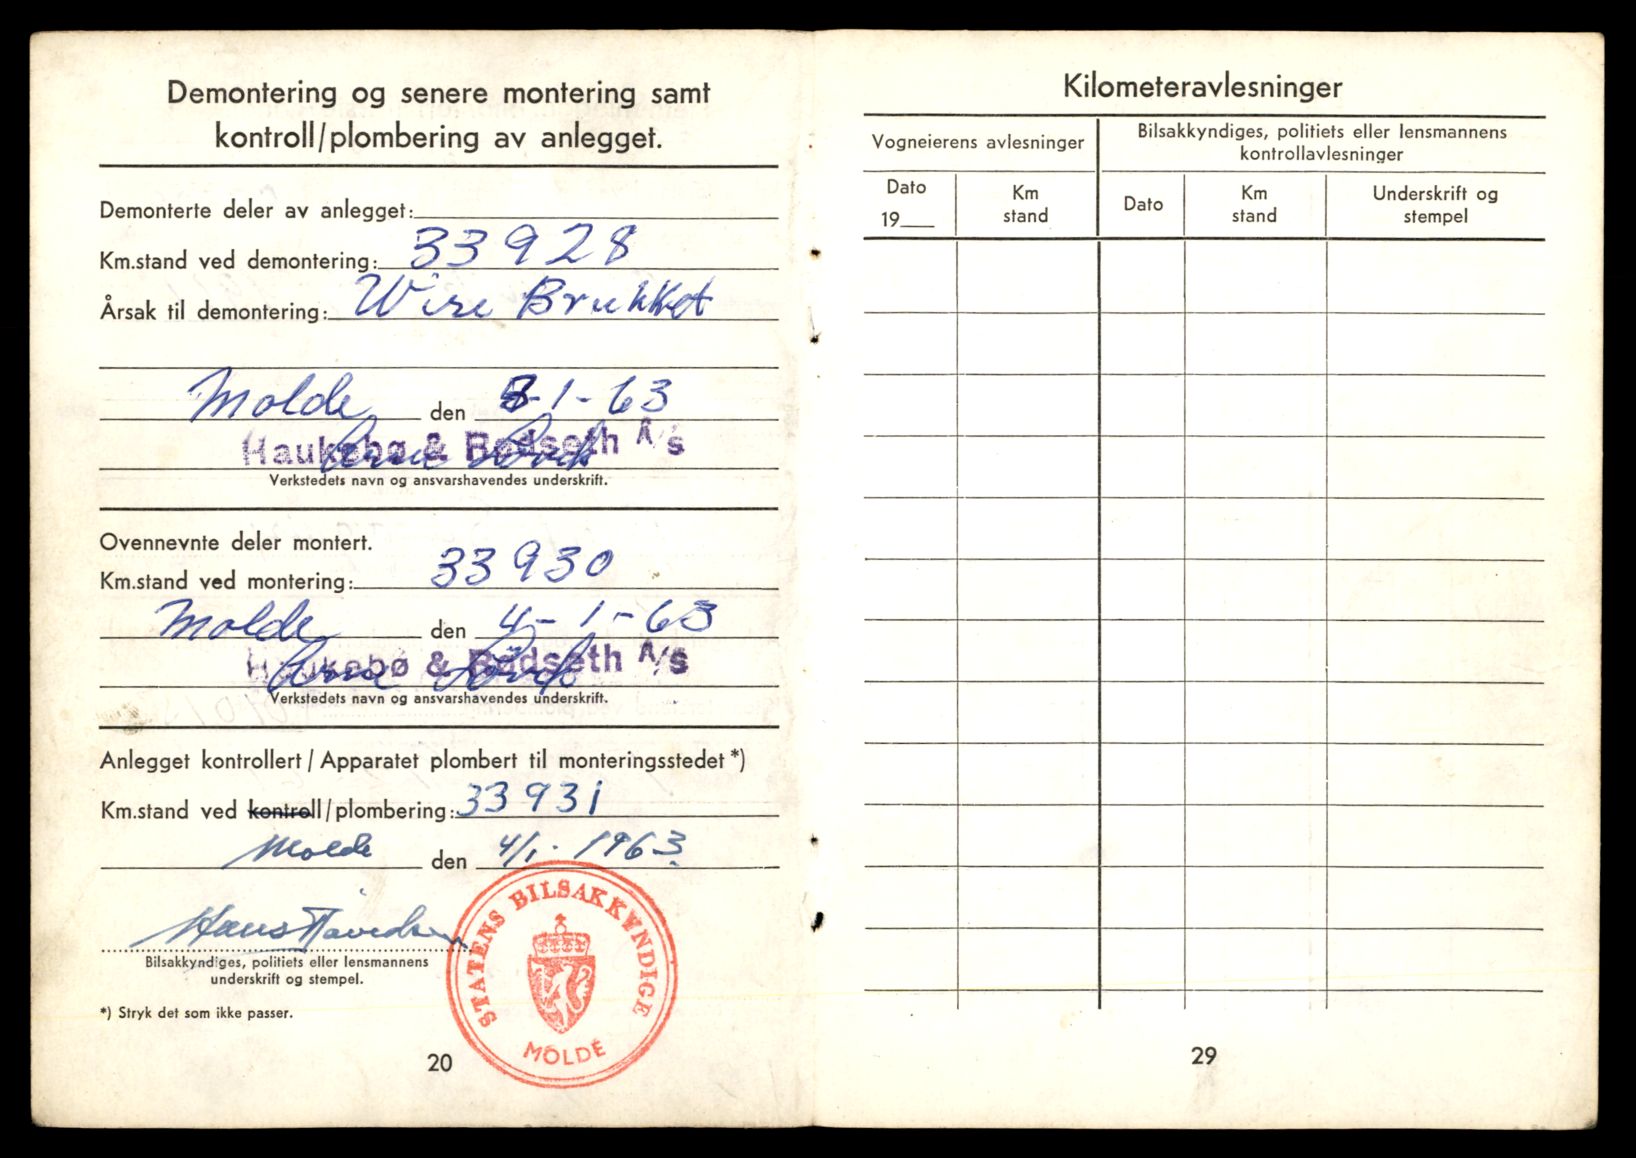 Demontering og senere montering samt
kontroll/plombering av anlegget.
Demonterte deler av anlegget:
Km.stand ved demontering: 33928
Årsak til demontering: Wire Brukket
Molde den -1-63
Haukebø & Rødseth A/s
Arne
Verkstedets navn og ansvarshavendes underskrift.
Ovennevnte deler montert.
Km.stand ved montering: 33930
Molde den 4-1-63
Haukebø & Rødseth A/s
Arne
Verkstedets navn og ansvarshavendes underskrift.
Anlegget kontrollert / Apparatet plombert til monteringsstedet *)
Km.stand ved kontroll/plombering: 33931
Molde den 4/1. 1963.
Hans
Bilsakkyndiges, politiets eller lensmannens
underskrift og stempel.
STATENS BILSAKKYNDIGE
MOLDE
*) Stryk det som ikke passer.
20
Kilometeravlesninger
Vogneierens avlesninger
Bilsakkyndiges, politiets eller lensmannens
kontrollavlesninger
Dato
19
Km
stand
Dato
Km
stand
Underskrift og
stempel
29